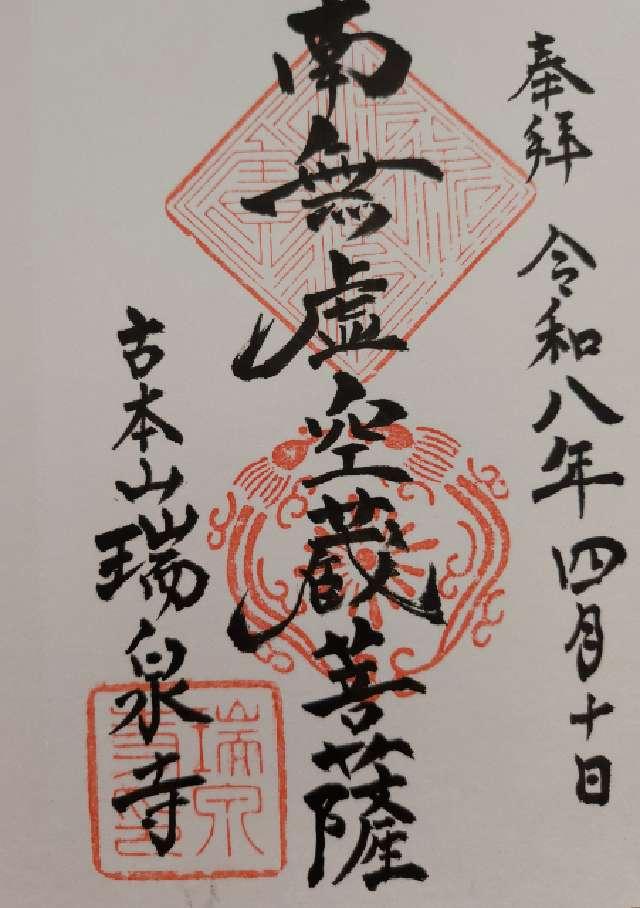 奉拝 令和八年四月十日
南無虚空蔵菩薩
古本山瑞泉寺
瑞泉寺印